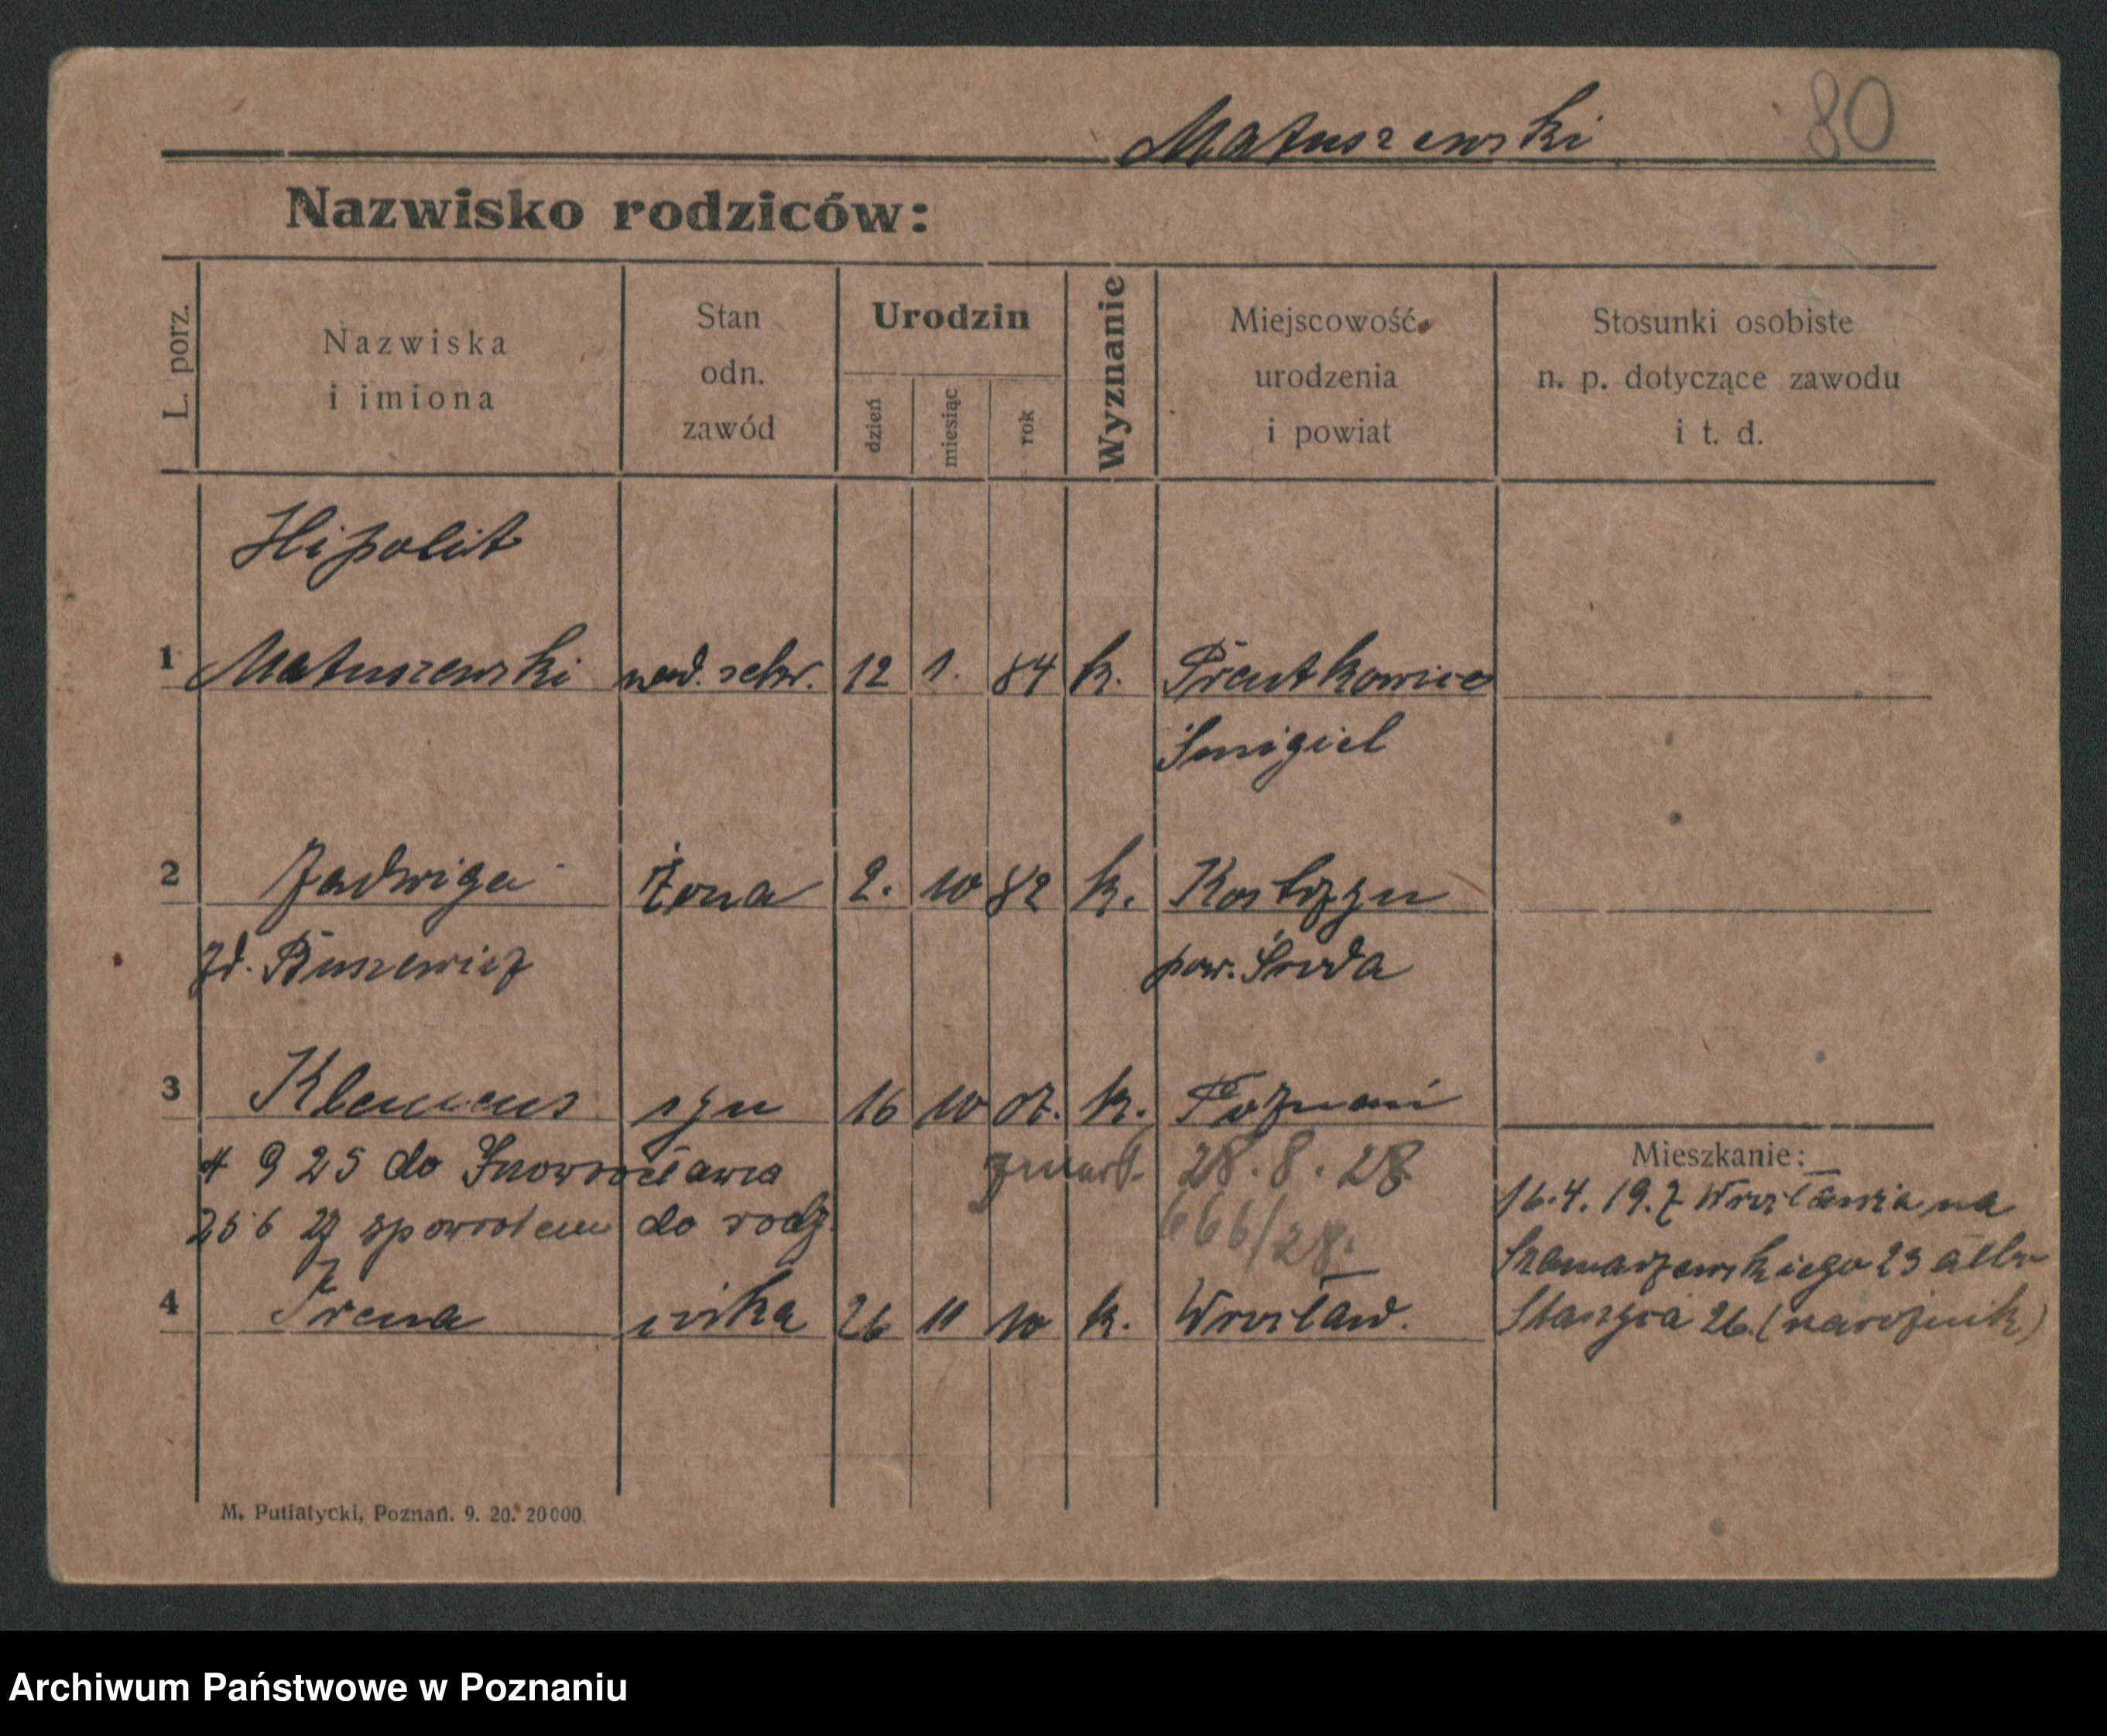 Matuszewski 80
Nazwisko rodziców:
L. porz.
Nazwiska
i imiona
Stan
odn.
zawód
Urodzin
dzień
miesiąc
rok
Wyznanie
Miejscowość
urodzenia
i powiat
Stosunki osobiste
n. p. dotyczące zawodu
i t. d.
Hipolit
1 Matuszewski 12 1. 84 k.
Śmigiel
2 Jadwiga żona 2. 10 82 k. Kostrzyn
pow. Środa
3 Klemens syn 16 10 07. k. Poznań
4 9 25 do Inowrocławia
zmarł. 28.8.28
25 6 27 spowrotem do rodz.
666/28.
Mieszkanie:
16.4.19. z Wrocławia na
Szamarzewskiego 23 albo
Staszyca 26. (narożnik)
4 Irena córka 26 11 10 k. Wrocław.
M. Putiatycki, Poznań. 9. 20. 20000.
Archiwum Państwowe w Poznaniu